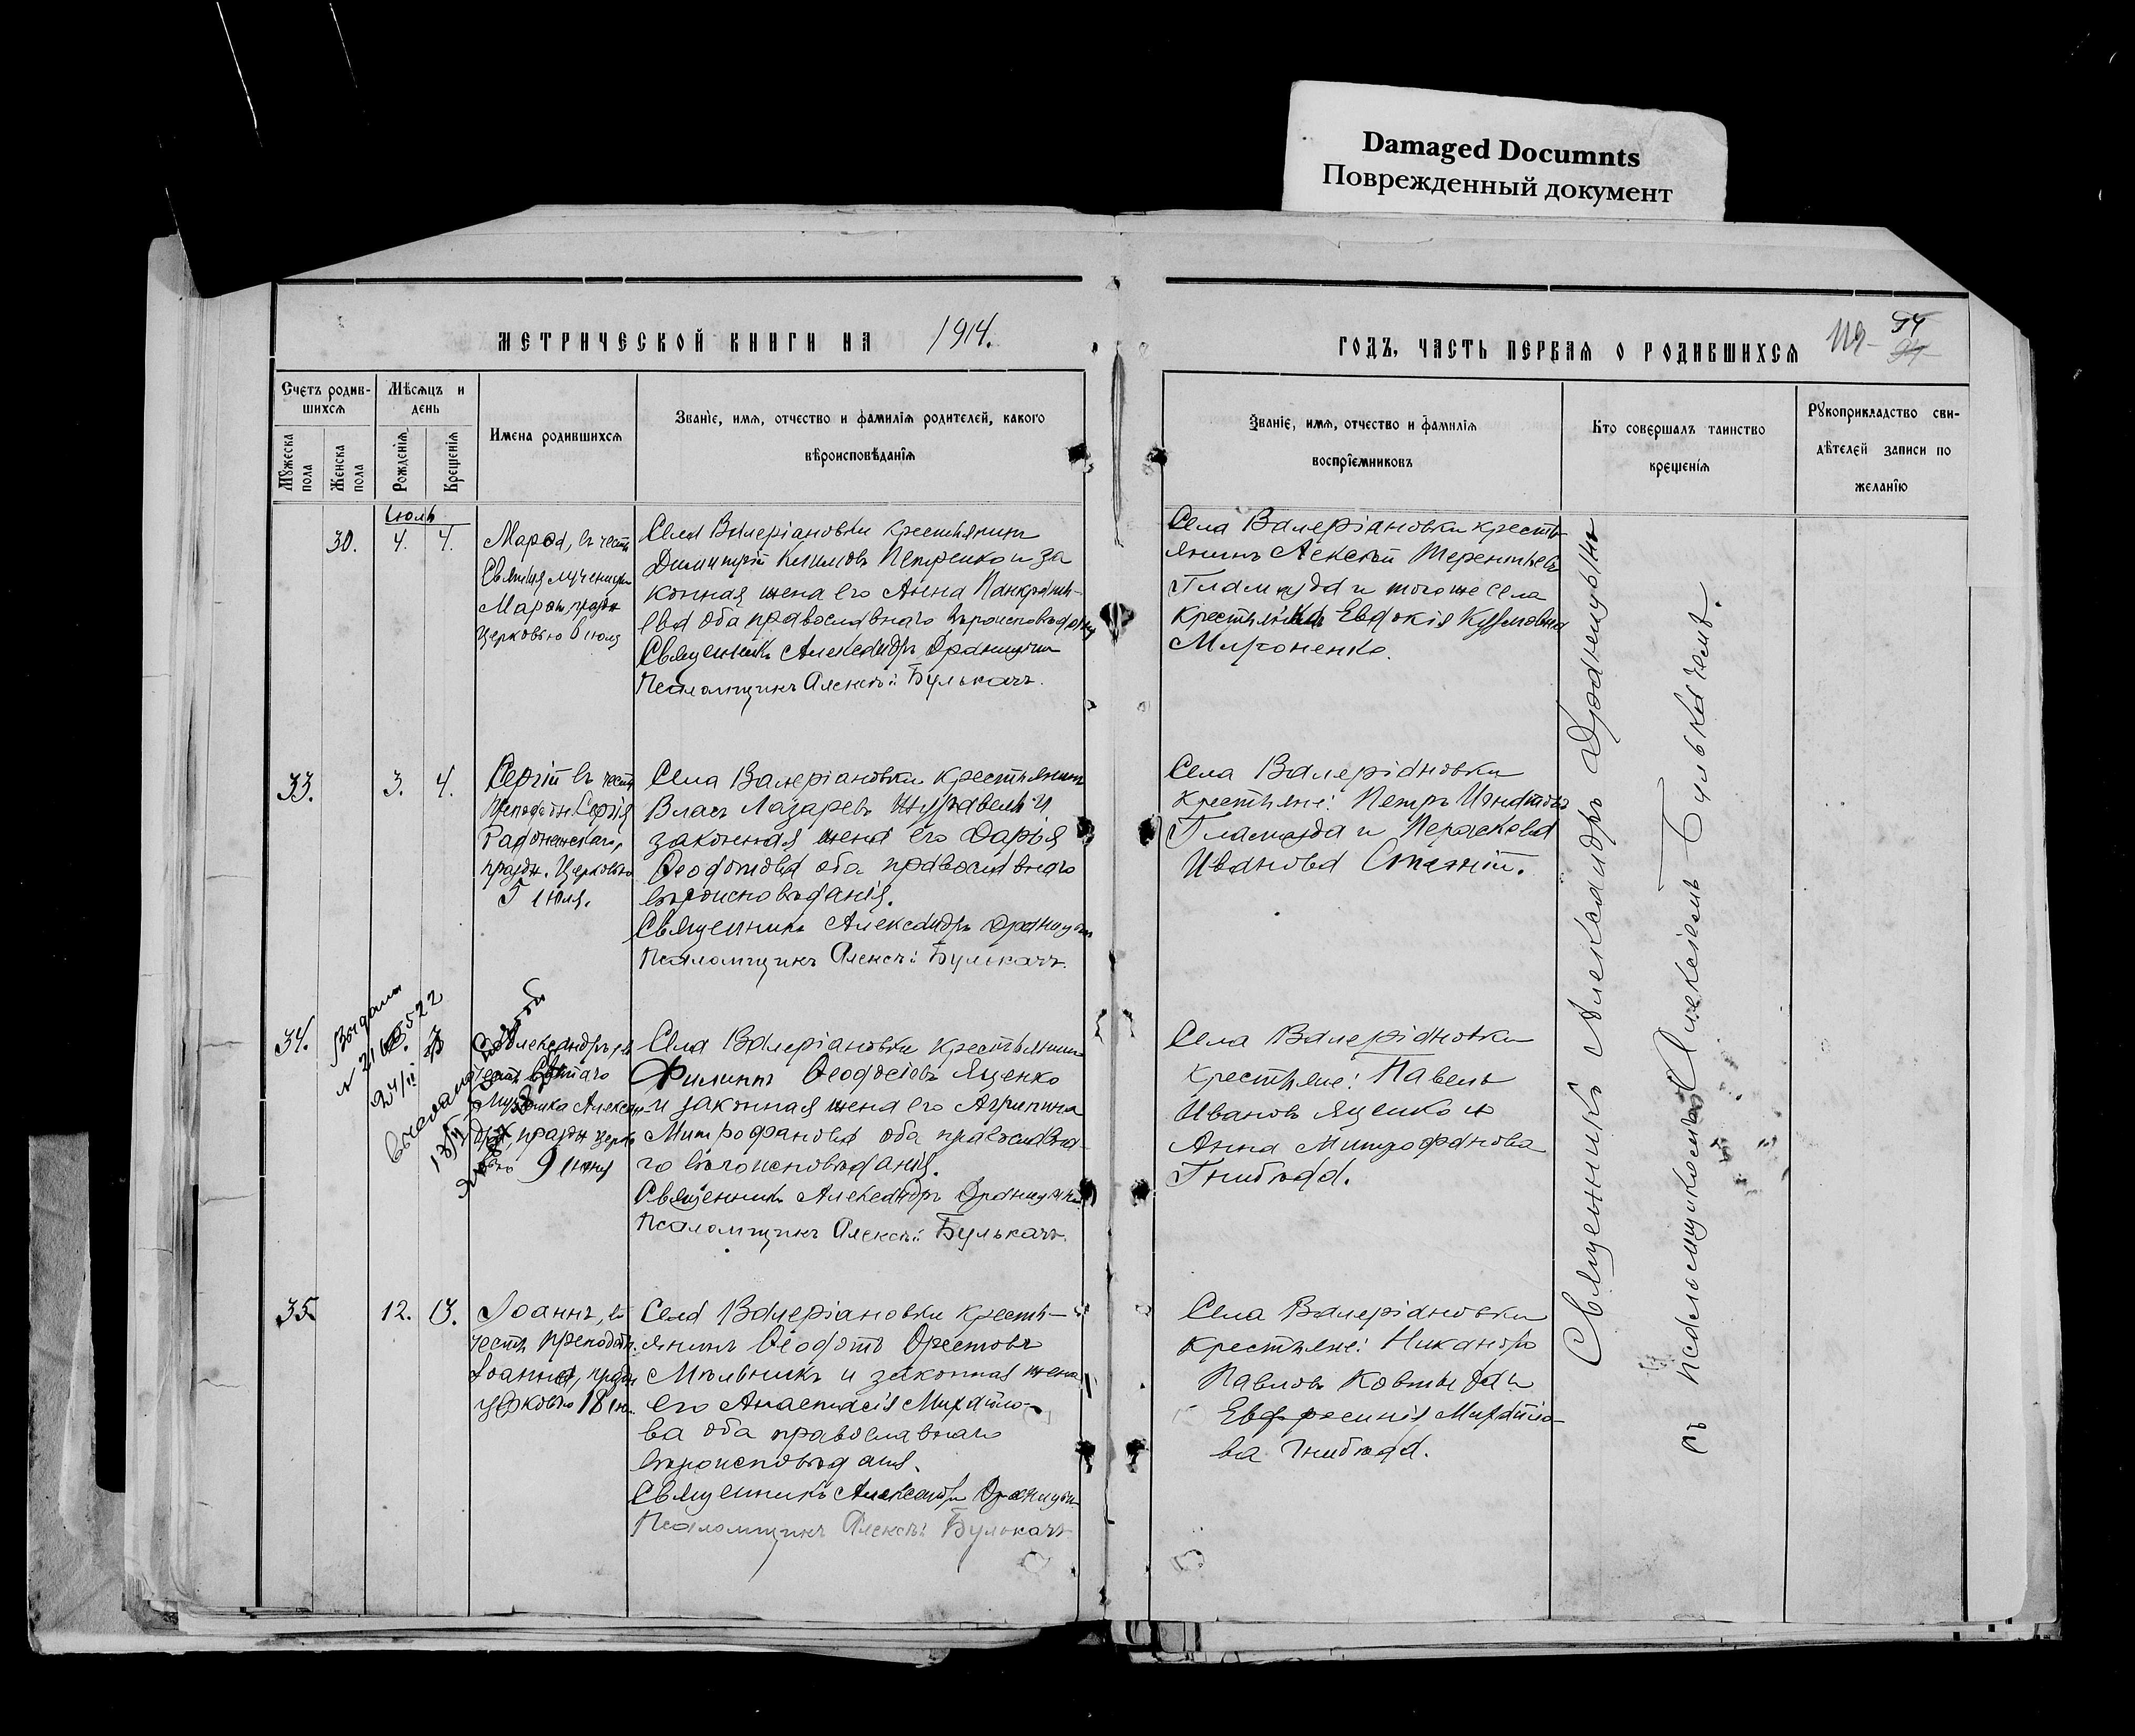 Damaged Documnts
Поврежденный документ
МЕТРИЧЕСКОЙ КНИГИ НА 1914.
ГОДЪ, ЧАСТЬ ПЕРВАЯ О РОДИВШИХСЯ
94
Счетъ родив-
шихся
Мужеска
пола
Женска
пола
Мѣсяцъ и
день
Рожденія
Крещенія
Имена родившихся
Званіе, имя, отчество и фамилія родителей, какого
вѣроисповѣданія
Званіе, имя, отчество и фамилія
воспріемниковъ
Кто совершалъ таинство
крещенія
Рукоприкладство сви-
дѣтелей записи по
желанію
Іюль
30.
4. 4.
Марѳа, въ честь
Святыя мученицы
Марѳы, праздн
церковью 6 іюля
Села Валеріановки крестьянинъ
Димитрій Климовъ Петренко и за
конная жена его Анна Панкратіи-
ева оба православнаго вѣроисповѣданія
Священникъ Александръ
Псаломщикъ Алексѣй Булькачъ.
Села Валеріановки кресть
янинъ Алексѣй Терентьевъ
Гламазда и тогоже села
крестьянка Евдокія Кузмовна
Мироненко.
33.
3. 4.
Сергій въ честь
Преподобн. Сергія
Радонежскаго,
праздн. Церковью
5 іюля.
Села Валеріановки крестьянинъ
Власъ Лазаревъ Журавель и
законная жена его Дарья
Ѳеодотова оба православнаго
вѣроисповѣданія.
Священникъ Александръ
Псаломщикъ Алексѣй Булькачъ.
Села Валеріановки
крестьяне: Петръ Игнатовъ
Гламазда и Параскева
Иванова
34.
Александръ, въ
честь Святаго
Мученика Алексан
дра, праздн церко
вью 9 іюня
Села Валеріановки крестьянинъ
Филиппъ Ѳеодосіевъ Яценко
и законная жена его Агрипина
Митрофанова оба православна-
го вѣроисповѣданія.
Священникъ Александръ
Псаломщикъ Алексѣй Булькачъ.
Села Валеріановки
крестьяне: Павелъ
Ивановъ Яценко и
Анна Митрофанова
Гнибѣда.
35.
12. 13.
Іоаннъ, въ
честь Преподобн.
Іоанна, праздн
церковью 18 іюл.
Села Валеріановки кресть-
янинъ Ѳеодотъ Орестовъ
Мѣльникъ и законная жена
его Анастасія Михайло-
ва оба православнаго
вѣроисповѣданія.
Священникъ Александръ
Псаломщикъ Алексѣй Булькачъ
Села Валеріановки
крестьяне: Никаноръ
Павловъ Ковтында и
Евфросинія Михайло-
ва Гнибѣда.
Священникъ Александръ
съ псаломщикомъ Алексѣемъ Булькачемъ.